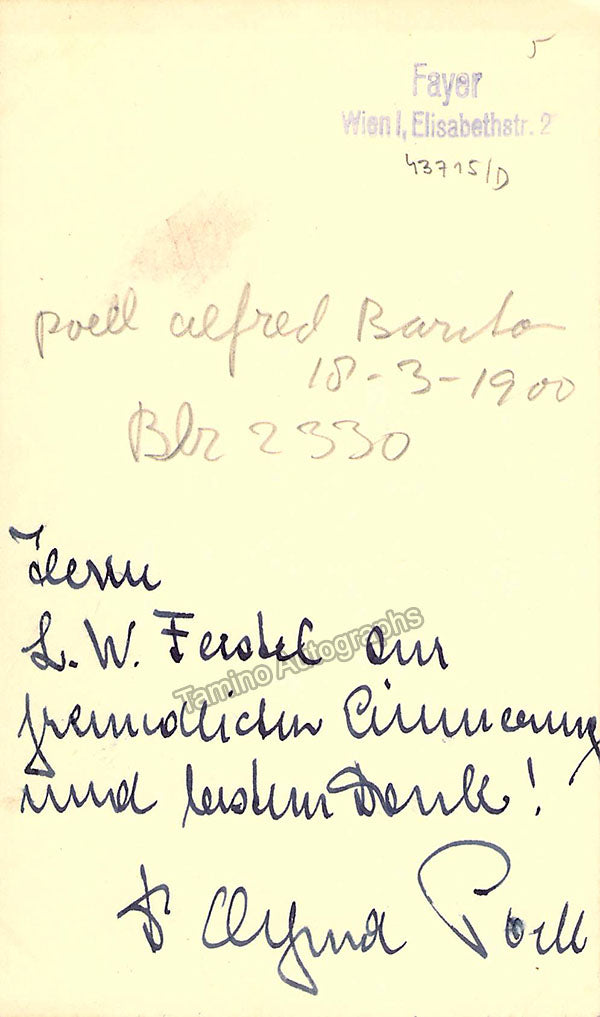 5
Fayer
Wien I, Elisabethstr. 2
43715/D
poell alfred Bariton
18-3-1900
Blz 2330
Herrn
L. W. Ferstel zur
freundlichen Erinnerung
und bestem Dank!
Dr Alfred Poell
Tamino Autographs